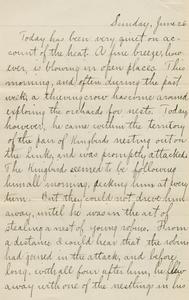 Sunday, June 26
Today has been very quiet on ac-
count of the heat. A fine breeze, how-
ever, is blowing in open places. This
morning, and often during the past
week, a thieving crow has come around
exploring the orchards for nests. Today,
however, he came within the territory
of the pair of Kingbirds nesting out on
the bank, and was promptly attacked.
The Kingbirds seemed to be following
him all morning, picking him at every
turn. But they could not drive him
away, until he was in the act of
stealing a nest of young robins. From
a distance I could hear that the robins
had joined in the attack, and before
long, with all four after him, he flew
away with one of the nestlings in his